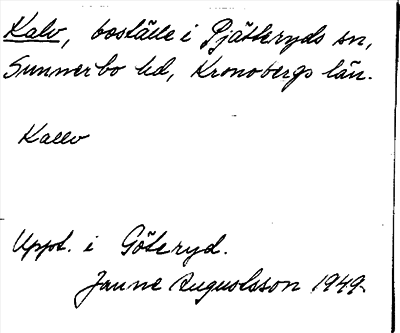 Kalv, boställe i Pjätteryds sn,
Sunnerbo hd, Kronobergs län.
Kallv
Uppt. i Göteryd.
Janne Augustsson 1949